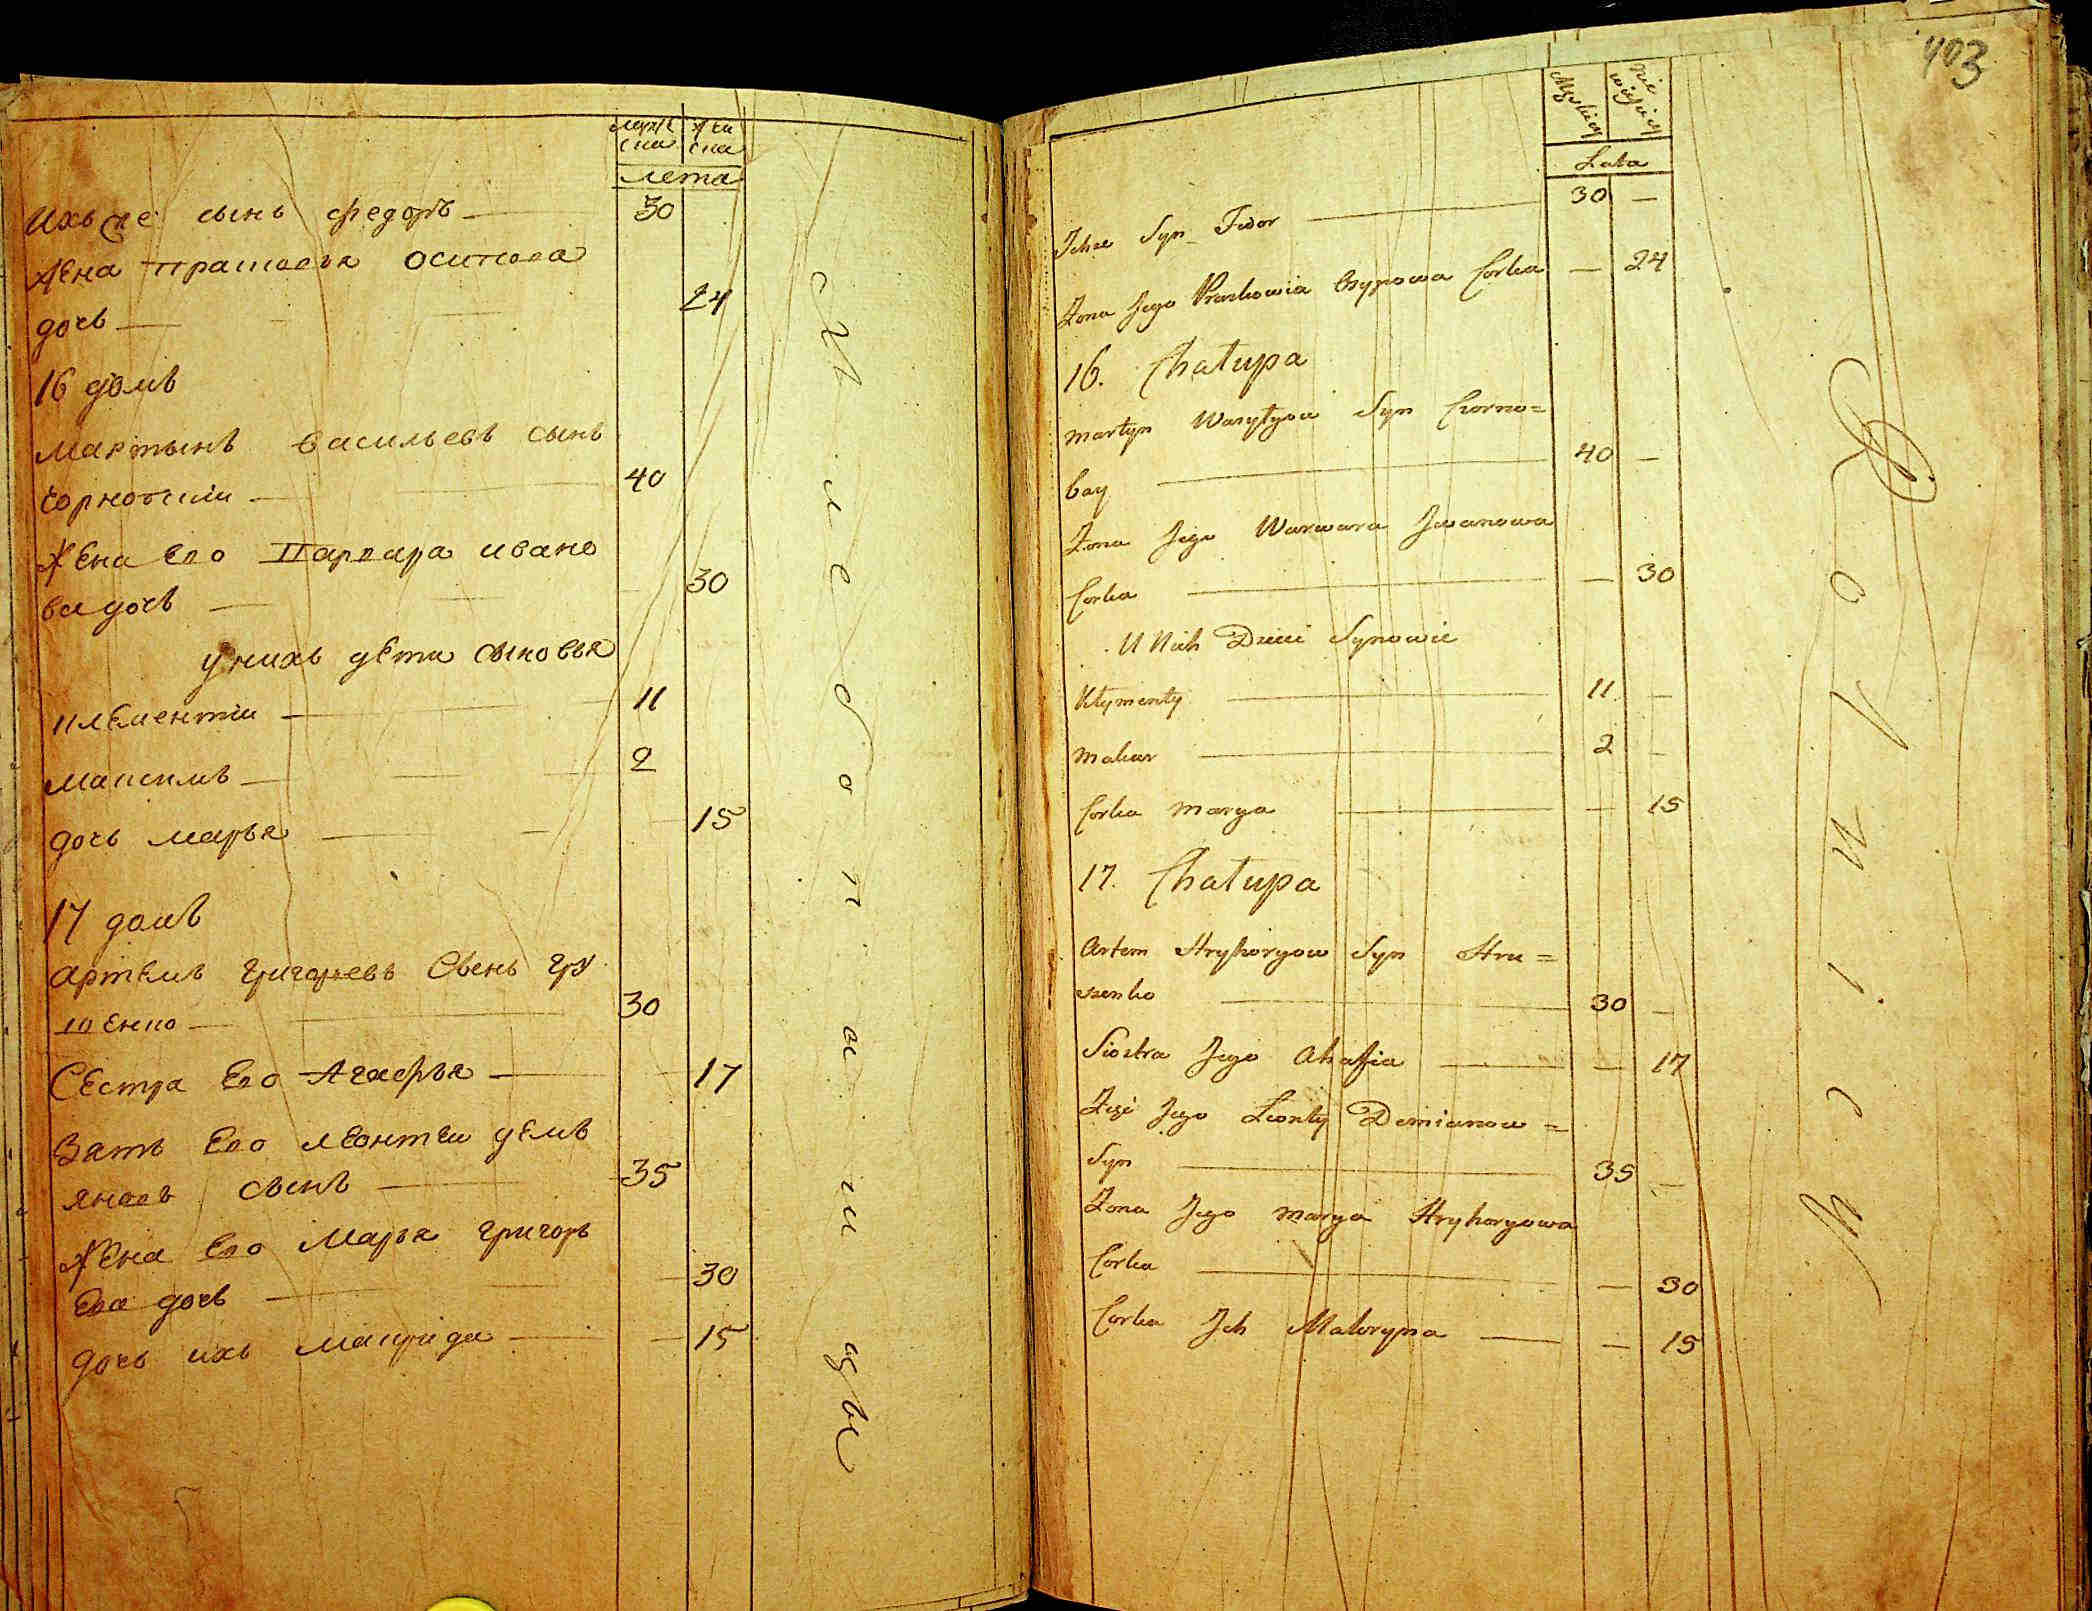 мужс жен
ска ска
лета
ихъ же сынъ федоръ 30
жена прасковья осипова
дочь 24
16 домъ
мартынъ васильевъ сынъ
чорнобай 40
жена Его Варвара ивано
ва дочь 30
у нихъ дети сыновья
клементи 11
максимъ 2
дочь марья 15
17 домъ
артемъ григорьевъ Сынъ гру
шенко 30
Сестра Его Агафья 17
Зать Его леонтеи демъ
яновъ сынъ 35
жена Его Марья григорь
Ева дочь 30
дочь ихъ
хлебопашцы
403
Męskiey
Nie
wieściey
Lata
Ichże Syn Fedor 30 —
Zona Jego Praskowia Osypowa Corka — 24
16. Chałupa
Martyn Wasylyow Syn Czorno=
bay 40 —
Zona Jego Warwara Jwanowa
Corka — 30
U Nich Dzieci Synowie
Klymenty 11 —
Makar 2 —
Corka Marya — 15
17. Chałupa
Artem Hryhoryow Syn Hru=
szenko 30 —
Siostra Jego Ahafia — 17
Zięć Jego Leonty Demianow=
Syn 35 —
Zona Jego Marya Hryhoryowa
Corka — 30
Corka Jch Makryna — 15
Rolnicy